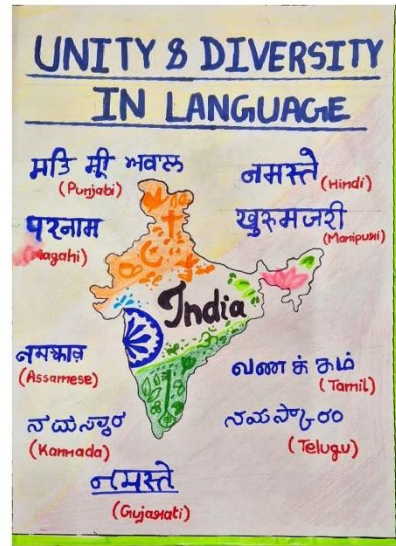 UNITY & DIVERSITY
IN LANGUAGE
ਸਤਿ ਸ੍ਰੀ ਅਕਾਲ
(Punjabi)
नमस्ते
(Hindi)
परनाम
(Magahi)
खुरुमजरी
(Manipuri)
India
নমস্কাৰ
(Assamese)
வணக்கம்
(Tamil)
ನಮಸ್ಕಾರ
(Kannada)
నమస్కారం
(Telugu)
નમસ્તે
(Gujarati)